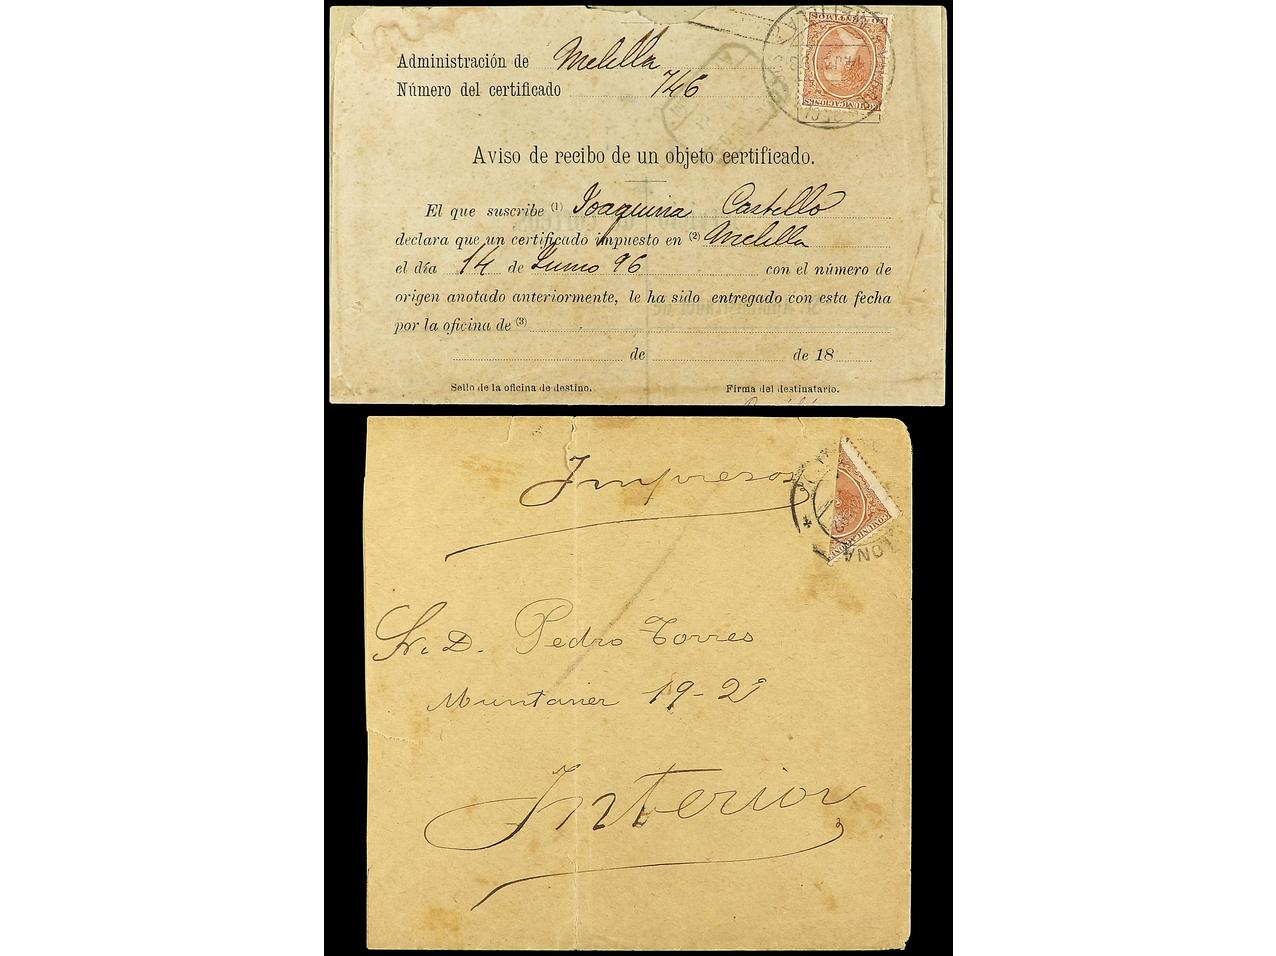 Administración de Melilla
Número del certificado 746
COMUNICACIONES
Aviso de recibo de un objeto certificado.
El que suscribe (1) Joaquina Castelló
declara que un certificado impuesto en (2) Melilla
el día 14 de Junio 96 con el número de
origen anotado anteriormente, le ha sido entregado con esta fecha
por la oficina de (3)
de de 18
Sello de la oficina de destino. Firma del destinatario.
Impresos
COMUNICACIONES
LONA
Sr. D. Pedro Torres
Muntaner 19-2º
Interior